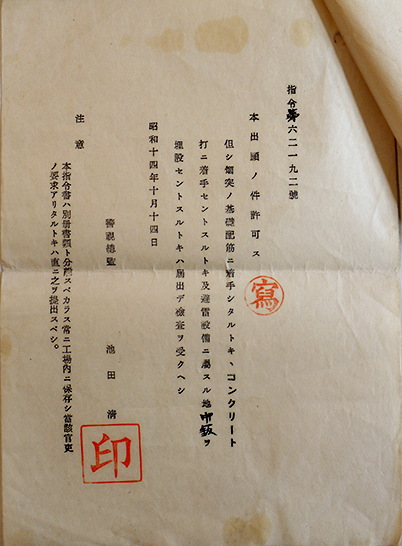 指令第六二一九二號
本出願ノ件許可ス
寫
但シ烟突ノ基礎配筋ニ着手シタルトキ、コンクリート
打ニ着手セントスルトキ及避雷設備ニ屬スル地中鈑ヲ
埋設セントスルトキハ届出デ檢査ヲ受クヘシ
昭和十四年十月十四日
警視總監 池田清
印
注意
本指令書ハ別册書類ト分離スベカラス常ニ工場內ニ保存シ當該官吏
ノ要求アリタルトキハ直ニ之ヲ提出スベシ。